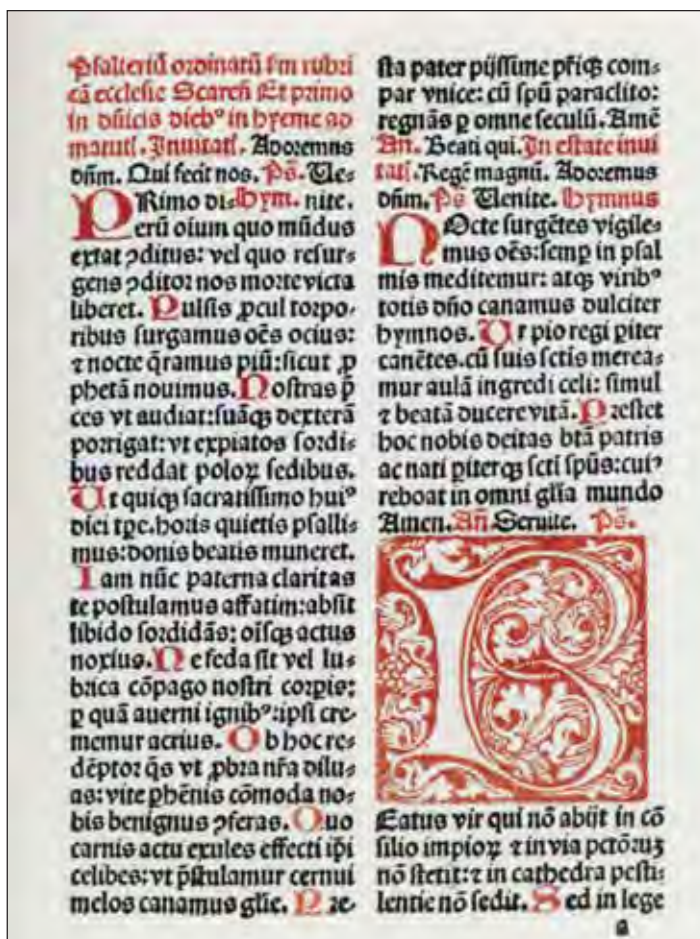 Psalteriū ordinatū ẜm rubri
cā ecclesie Scareñ Et primo
in dñicis dieb⁹ in hyeme ad
matuti. Inuitati. Adoremus
dñm. Qui fecit nos. Ps. Ue⸗
PRimo di⸗ Hym. nite.
erū oium quo mūdus
extat ↄditus: vel quo resur⸗
gens ↄditor nos morte victa
liberet. Pulsis ꝓcul torpo⸗
ribus surgamus oēs ocius:
⁊ nocte q̄ramus piū: sicut ꝓ
phetā nouimus. Nostras p̄
ces vt audiat: suāqꝫ dexterā
porrigat: vt expiatos sordi⸗
bus reddat poloꝝ sedibus.
Ut quiqꝫ sacratissimo hui⁹
diei tꝑe. horis quietis psalli⸗
mus: donis beatis muneret.
Iam nūc paterna claritas
te postulamus affatim: absit
libido sordidās: oīsqꝫ actus
noxius. Ne feda sit vel lu⸗
brica cōpago nostri corpis:
ꝑ quā auerni ignib⁹: ipsi cre⸗
memur acrius. Ob hoc re⸗
dēptor q̄s vt ꝓbra nr̄a dilu⸗
as: vite phēnis cōmoda no⸗
bis benignus ↄferas. Quo
carnis actu exules effecti ip̄i
celibes: vt p̄stulamur cernui
melos canamus glīe. Pre⸗
sta pater pijssime pr̄iqꝫ com⸗
par vnice: cū spū paraclito:
regnās ꝑ omne seculū. Amē
An. Beati qui. In estate inui
tati. Regē magnū. Adoremus
dñm. Ps Uenite. Hymnus
NOcte surgētes vigile⸗
mus oēs: semꝑ in psal
mis meditemur: atqꝫ virib⁹
totis dño canamus dulciter
hymnos. Ut pio regi piter
canētes. cū suis sctis merea⸗
mur aulā ingredi celi: simul
⁊ beatā ducere vitā. Prestet
hoc nobis deitas btā patris
ac nati piterqꝫ scti spūs: cui⁹
reboat in omni glīa mundo
Amen. Añ Seruite. Ps.
B
Eatus vir qui nō abijt in cō
silio impioꝝ ⁊ in via pctōruꝫ
nō stetit: ⁊ in cathedra pesti⸗
lentie nō sedit. Sed in lege
a